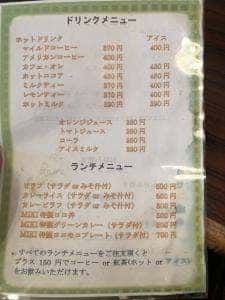 ドリンクメニュー
ホットドリンク アイス
マイルドコーヒー 370円 400円
アメリカンコーヒー 400円
カフェ・オレ 430円
ホットココア 430円
ミルクティー 400円
レモンティー 400円
ホットミルク 350円
オレンジジュース 350円
トマトジュース 350円
コーラ 350円
アイスミルク 350円
ランチメニュー
ピラフ(サラダ or みそ汁付) 600円
カレーライス(サラダ or みそ汁付)
カレーピラフ(サラダ or みそ汁付)
MIKI 特製ロコ丼
MIKI 特製グリーンカレー(サラダ付)
MIKI 特製ロコモコプレート(サラダ付) 700円
すべてのランチメニューをご注文頂くと
プラス 150 円でコーヒー or 紅茶(ホット or アイス)
をお飲みいただけます。